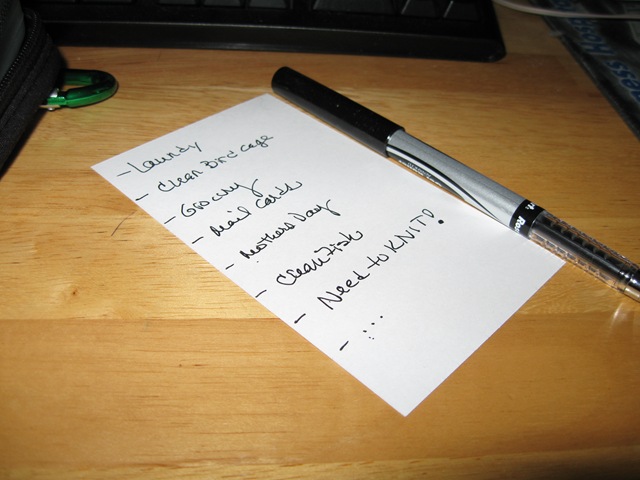 - Laundy
- Clean Bird cage
- Grocery
- Mail Cards
- Mothers Day
- Clean Fish
- Need to KNIT!
- ...